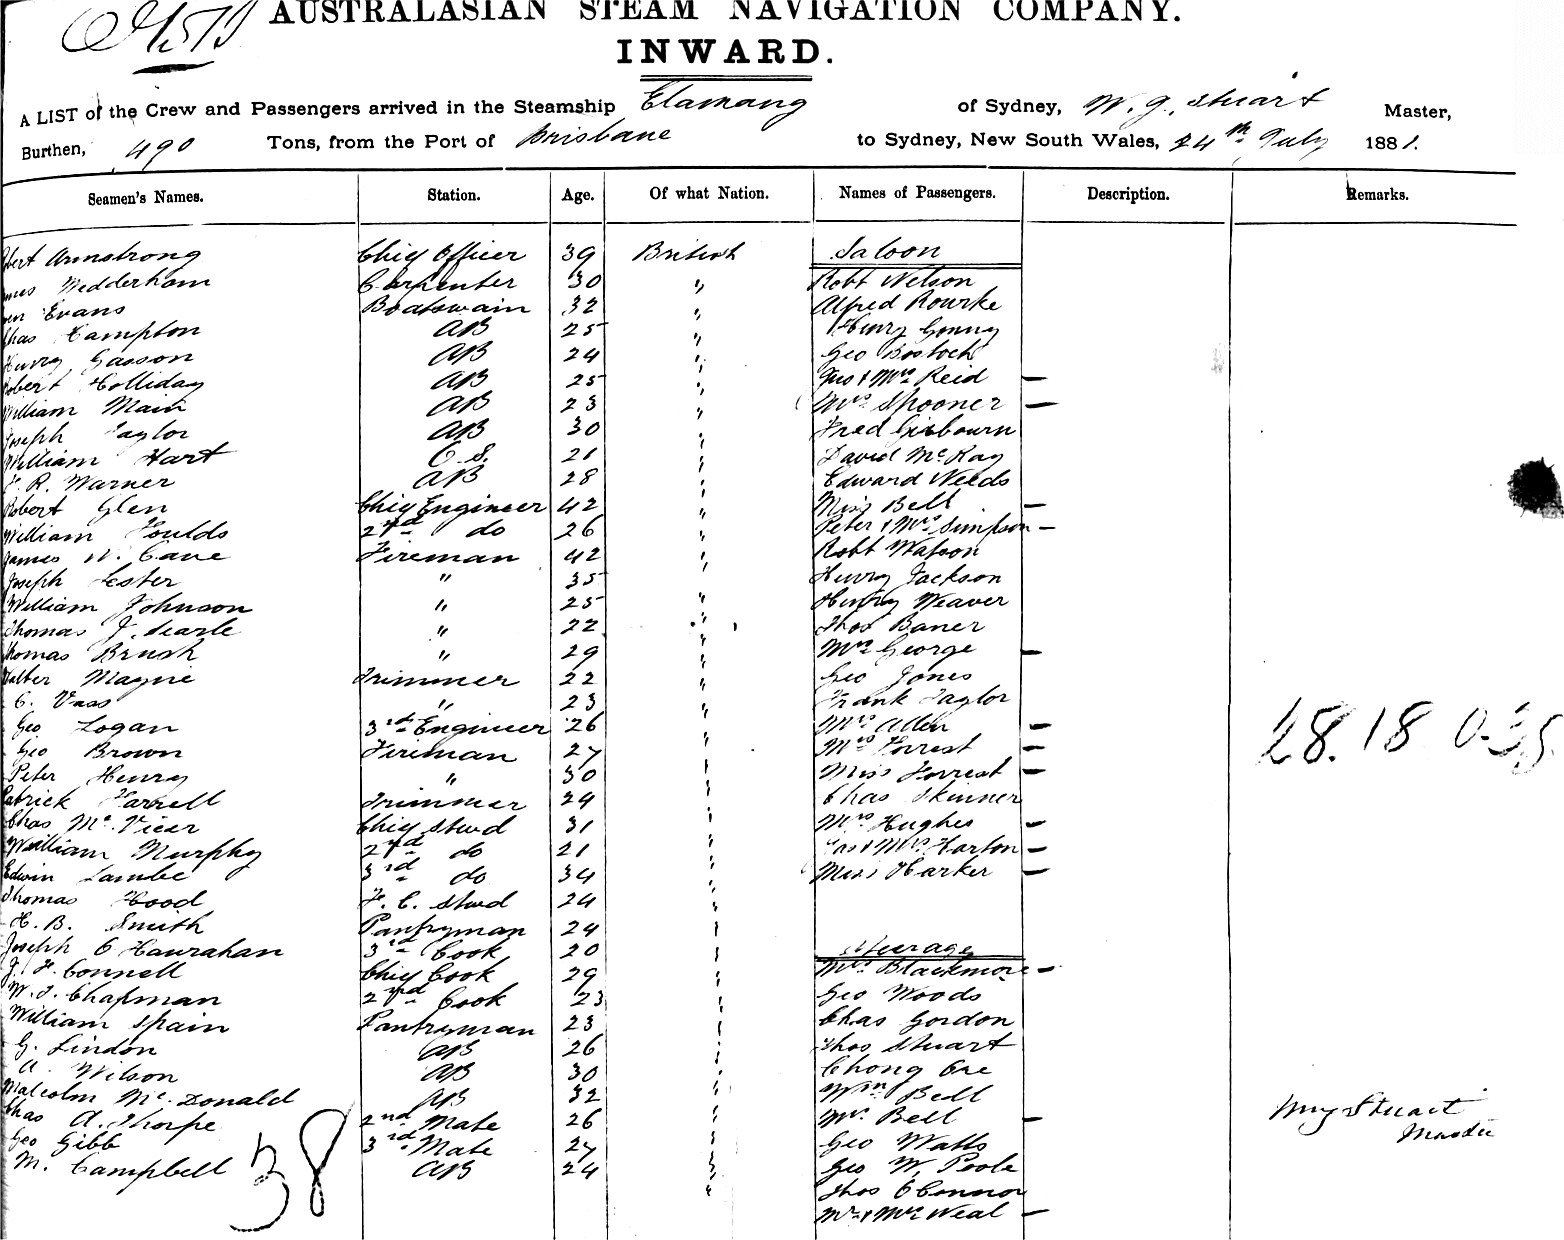 AUSTRALASIAN STEAM NAVIGATION COMPANY.
INWARD.
A LIST of the Crew and Passengers arrived in the Steamship Elamang of Sydney, W. G. Stuart Master,
Burthen, 490 Tons, from the Port of Brisbane to Sydney, New South Wales, 24th July 1881.
Seamen's Names. Station. Age. Of what Nation. Names of Passengers. Description. Remarks.
Armstrong Chief Officer 39 British Saloon
Wedderham Carpenter 30 " Robt Nelson
Evans Boatswain 32 " Alfred Rourke
Chas Hampton AB 25 " Henry
Henry Gasson AB 24 " Geo Bostock
Robert Holliday AB 25 " & Mrs Reid —
William Main AB 23 " Mrs Spooner —
Joseph Taylor AB 30 " Fred Gisbourn
William Hart O.S. 21 " David McKay
R. Warner AB 28 " Edward Weeds
Robert Glen Chief Engineer 42 " Miss Bell —
William Foulds 2nd do 26 " Peter & Mrs Simpson —
James W. Cave Fireman 42 " Robt Watson
Joseph Lester " 35 " Henry Jackson
William Johnson " 25 " Henry Weaver
Thomas J. Searle " 22 " Thos Baner
Thomas Brush " 29 " Mrs George —
Walter Mayne Trimmer 22 " Geo Jones
C. Vass " 23 " Frank Taylor
Geo Logan 3rd Engineer 26 " Mrs Allen —
Geo Brown Fireman 27 " Mrs Forrest —
Peter Henry " 30 " Miss Forrest —
Patrick Farrell Trimmer 29 " Chas Skinner
Chas McVicar Chief Stwd 31 " Mrs Hughes —
William Murphy 2nd do 21 " & Mrs Horton —
Edwin Lambe 3rd do 34 " Miss Harker —
Thomas Hood F. C. Stwd 24 "
H. B. Smith Pantryman 24 "
Joseph O Hanrahan 3rd Cook 20 " Steerage
J. F. Connell Chief Cook 29 " Mrs Blackmore —
W. J. Chapman 2nd Cook 23 " Geo Woods
William Spain Pantryman 23 " Chas Gordon
G. Lindon AB 26 " Thos Stuart
A. Wilson AB 30 " Chong
Malcolm McDonald AB 32 " Wm Bell
Chas A. Thorpe 2nd Mate 26 " Mrs Bell —
Geo Gibb 3rd Mate 27 " Geo Watts
M. Campbell AB 24 " Geo W. Poole
" Thos O'Connor
Mr & Mrs Weal —
38
28. 18
Stuart
Master